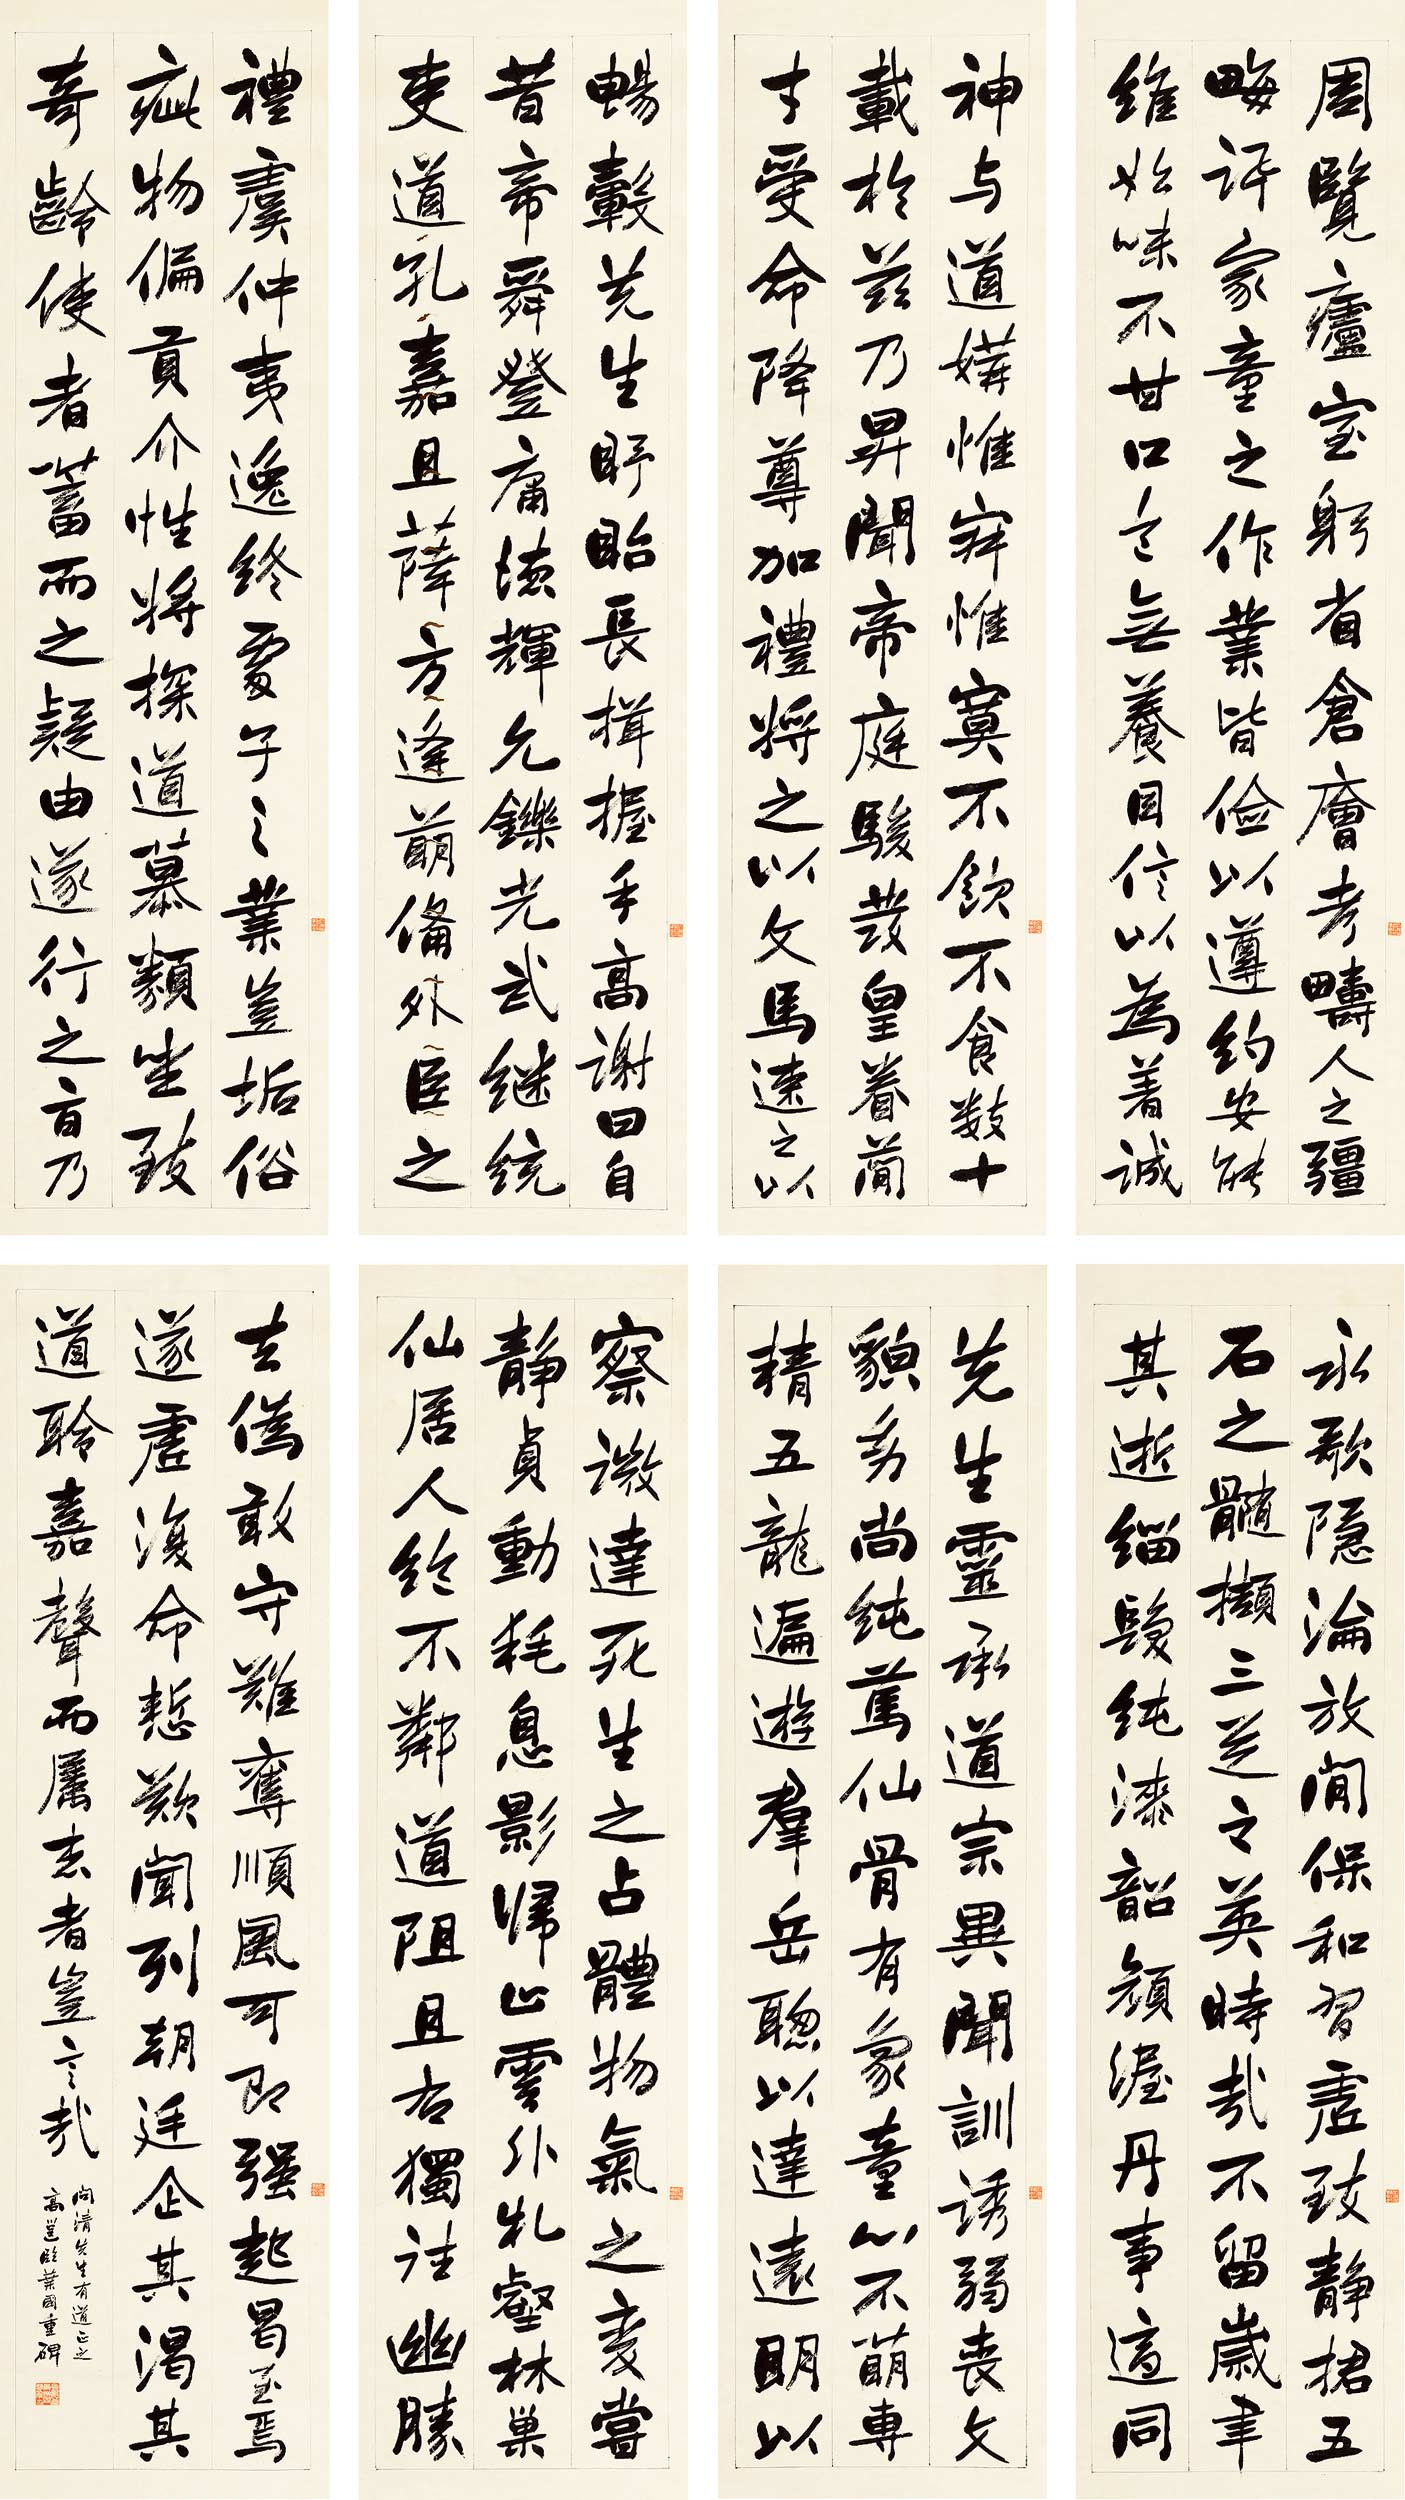 周覽廬室躬省倉廥考疇人之疆
畮訝家童之作業皆儉以遵約安能
維始味不甘口言無養目信以為著誠
神与道媾惟寂惟寞不飲不食数十
載於茲乃昇聞帝庭駿發皇眷簡
才受命降尊加禮將之以文馬速之以
暢轂先生盱眙長揖握手高謝曰自
昔帝舜登庸德輝允鑠光武継統
吏道孔嘉且薛方逢萌備外臣之
禮虞仲夷逸終處子之業豈垢俗
疵物偏貢介性將探道慕類坐致
奇齡使者蓄而之疑由遂行之言乃
永歌隱淪放閒保和習虛致靜捃五
石之髓擷三芝之英時哉不留歲聿
其逝緇髮純漆韶顏渥丹事適同
先生靈承道宗異聞訓誘弱喪文
貌剪尚純篤仙骨有象童心不萌専
精五龍遍遊羣岳聰以達遠明以
察微達死生之占體物氣之变嘗
靜貞動耗息影歸止雲卧札壑林巢
仙居人絶不鄰道阻且右獨往幽勝
去偽敢守難奪順風可即强起曷至焉
遂虛復命慙歎聞列朝廷企其渴其
道聆嘉聲而屬志者豈言哉
向清先生有道正之
高邕臨葉國重碑